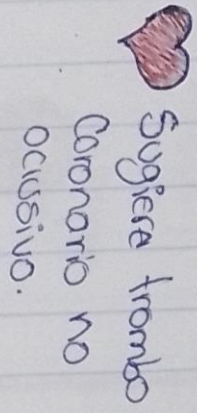 Sugiere trombo
Coronario no
oclusivo.